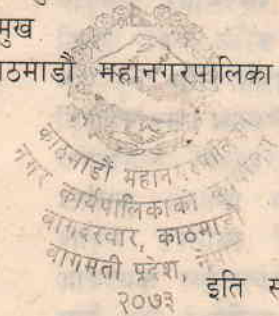 मुख
काठमाडौं महानगरपालिका
काठमाडौं महानगरपालिका
नगर कार्यपालिकाको कार्यालय
बागदरवार, काठमाडौं
बागमती प्रदेश, नेपाल
२०७३
इति स